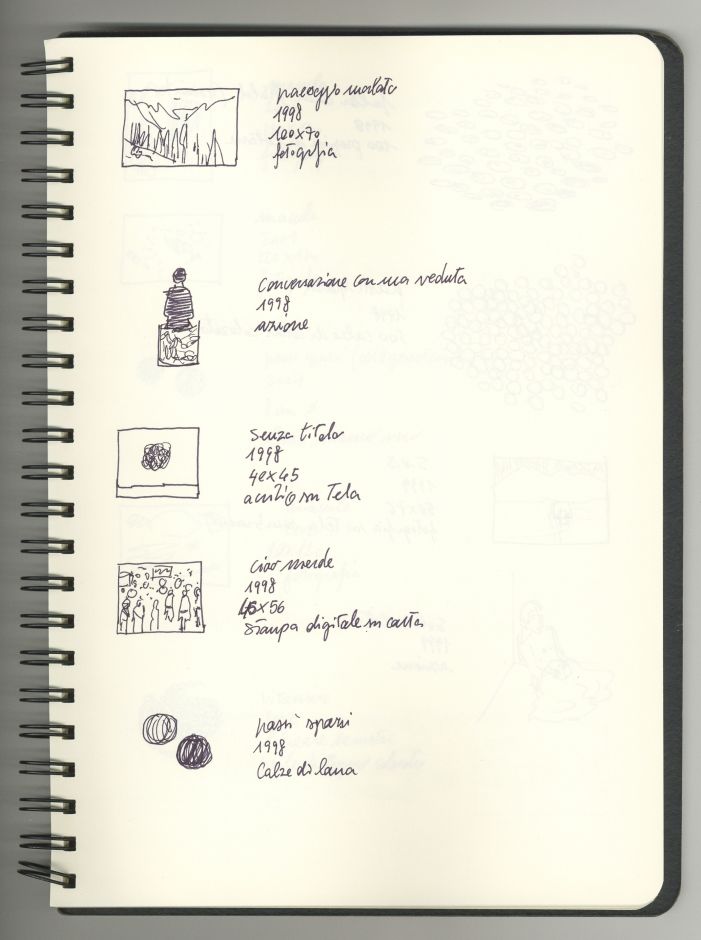 1998
100x70
fotografia
Conversazione con una veduta
1998
azione
Senza titolo
1998
40x45
acrilico su Tela
ciao merde
1998
45x56
Stampa digitale su carta
passi spazi
1998
Calze di lana